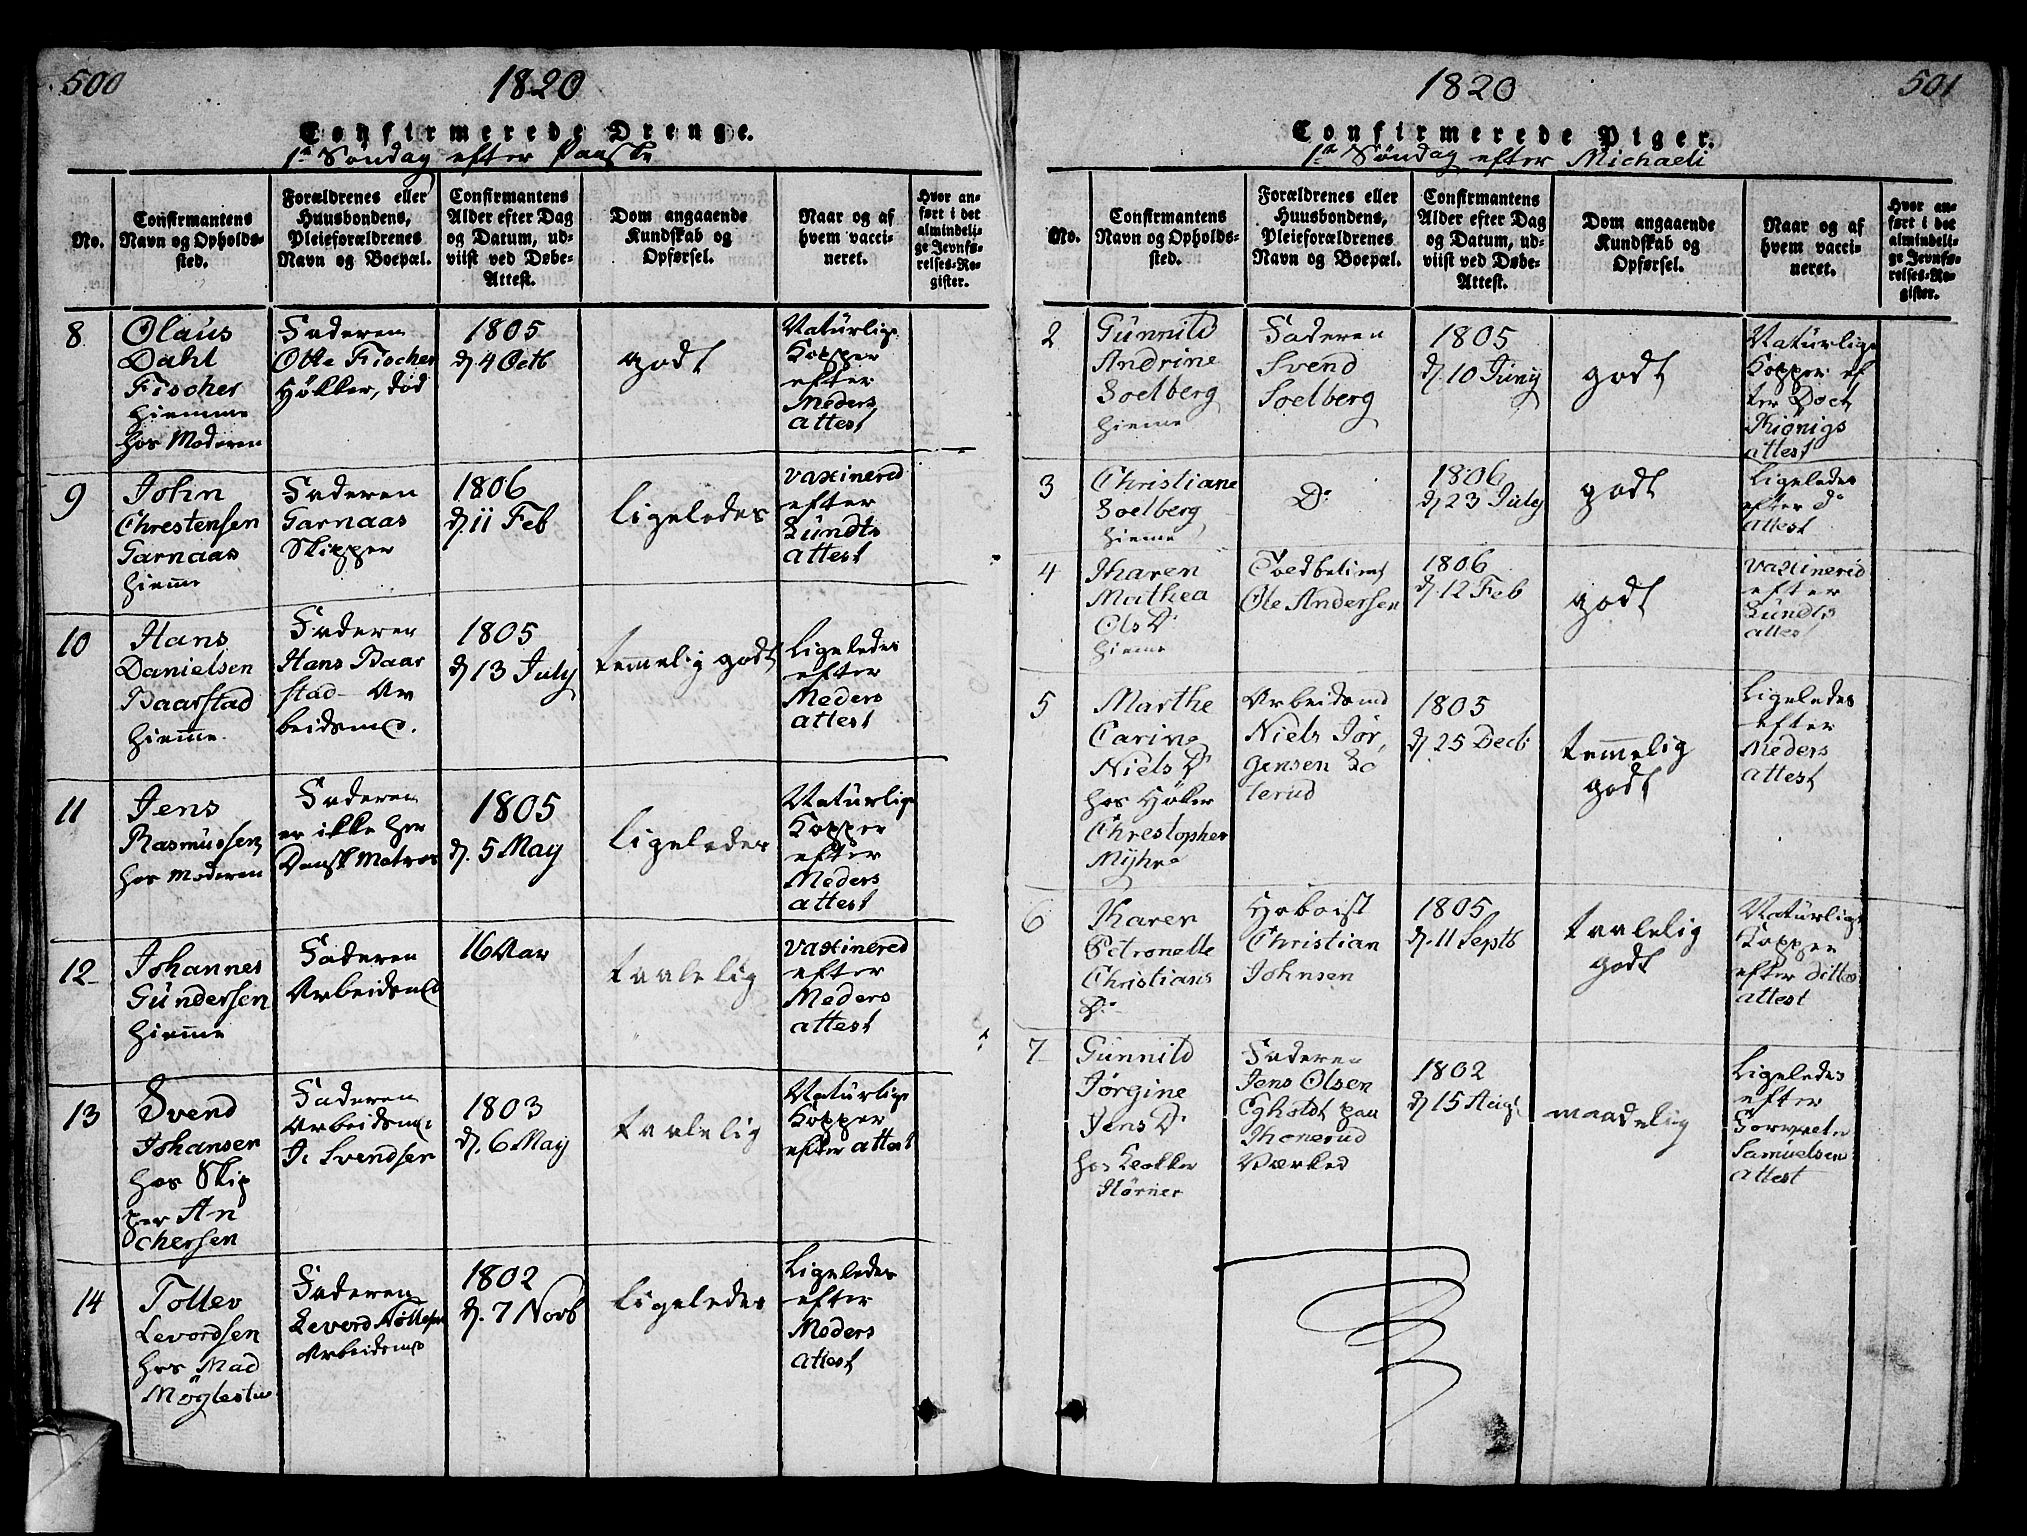 500
1820
Confirmerede Drenge.
1ste Søndag efter Paaske
No.
Confirmantens
Navn og Opholds-
sted.
Forældrenes eller
Huusbondens,
Pleieforældrenes
Navn og Boepæl.
Confirmantens
Alder efter Dag
og Datum, ud-
viist ved Døbe-
Attest.
Dom angaaende
Kundskab og
Opførsel.
Naar og af
hvem vacci-
neret.
Hvor an-
ført i det
almindeli-
ge Jevnfø-
relses-Re-
gister.
8
Olaus
Dahl
Fischer
hiemme
hos Moderen
Faderen
Otte Fischer
Høkker, død
1805
d. 4 Octb
godt
Naturlige
Kopper
efter
Meders
attest
9
John
Chrestensen
Garnaas
hiem̅e
Faderen
Garnaas
Skipper
1806
d. 11 Feb
ligeledes
vaxinered
efter
Lundts
attest
10
Hans
Danielsen
Baarstad
hiem̅e
Faderen
Hans Baar
stad - Ar
beidsmd.
1805
d. 13 July
tem̅elig godt
ligeledes
efter
Meders
attest
11
Jens
Rasmussen
hos Moderen
Faderen
er ikke her
Dansk Matros
1805
d. 5 May
ligeledes
Naturlige
Kopper
efter
Meders
attest
12
Johannes
Gundersen
hiem̅e
Faderen
Arbeidsmd
16 Aar
taalelig
vaxinered
efter
Meders
attest
13
Svend
Johansen
hos Skip
per An
chersen
Faderen
Arbeidsmd
J: Svendsen
1803
d. 6 May
taalelig
Naturlige
Kopper
efter attest
14
Tollev
Levordsen
hos Mad
Møglestue
Faderen
Levord Tøllefsen
Arbeidsmd
1802
d. 7 Novb
ligeledes
Ligeledes
efter
Meders
attest
501
1820
Confirmerede Piger.
1ste Søndag efter Michaeli
No.
Confirmantens
Navn og Opholds-
sted.
Forældrenes eller
Huusbondens,
Pleieforældrenes
Navn og Boepæl.
Confirmantens
Alder efter Dag
og Datum, ud-
viist ved Døbe-
Attest.
Dom angaaende
Kundskab og
Opførsel.
Naar og af
hvem vacci-
neret.
Hvor an-
ført i det
almindeli-
ge Jevnfø-
relses-Re-
gister.
2
Gunnild
Andrine
Soelberg
hieme
Faderen
Svend
Soelberg
1805
d. 10 Juny
godt
Naturlige
Kopper ef
ter Doct
Kionigs
attest
3
Christiane
Soelberg
hieme
D:
1806
d. 23 July
godt
Ligeledes
efter do
attest
4
Karen
Mathea
Ols D
hieme
Ole Andersen
1806
d. 12 Feb
godt
vaxinered
efter
Lundts
attest
5
Marthe
Carine
Niels D
hos Høker
Chrestopher
Myhre
Arbeidsmd
Niels Jør
gensen So
lerud
1805
d. 25 Decb:
tem̅elig
godt
Ligeledes
efter
Meders
attest
6
Karen
Petronelle
Christians
D:
Hoboist
Christian
Johnsen
1805
d. 11 Septb
taalelig
godt
Naturlige
Kopper
efter ditto
attest
7
Gunnild
Jørgine
Jens D
hos Klokker
Hørner
Faderen
Jens Olsen
Egholdt paa
Værked
1802
d. 15 Augs
maadelig
Ligeledes
efter
Samuelsens
attest